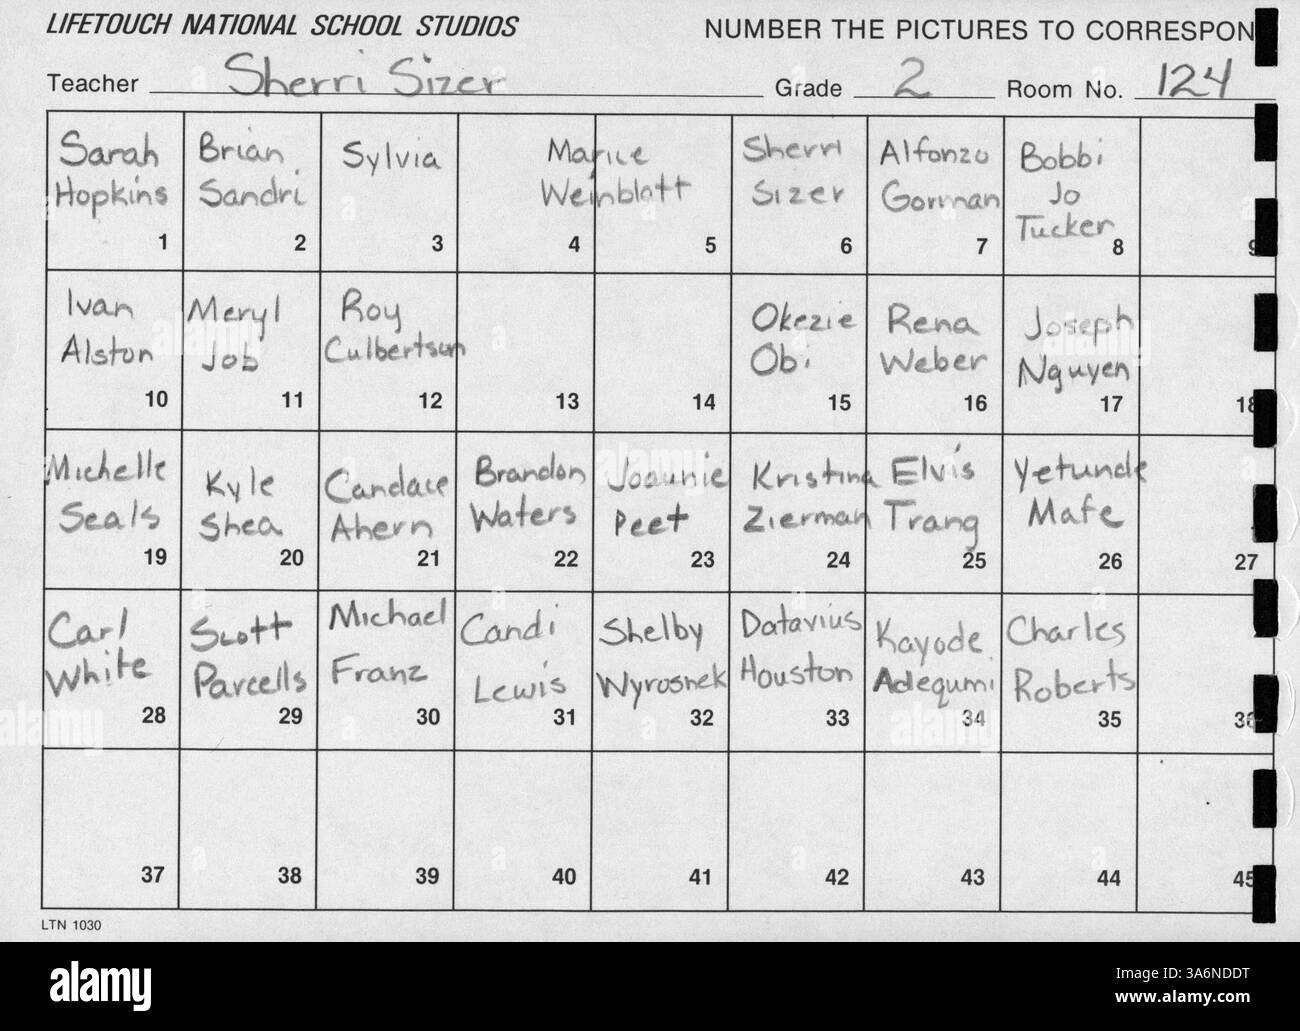 LIFETOUCH NATIONAL SCHOOL STUDIOS
NUMBER THE PICTURES TO CORRESPON
Teacher Sherri Sizer Grade 2 Room No. 124
Sarah Hopkins 1
Brian Sandri 2
Sylvia 3
Marice Weinblatt 4 5
Sherri Sizer 6
Alfonzo Gorman 7
Bobbi Jo Tucker 8
9
Ivan Alston 10
Meryl Job 11
Roy Culbertson 12
13
14
Okezie Obi 15
Rena Weber 16
Joseph Nguyen 17
18
Michelle Seals 19
Kyle Shea 20
Candace Ahern 21
Brandon Waters 22
Joaunie Peet 23
Kristina Zierman 24
Elvis Trang 25
Yetunde Mafe 26
27
Carl White 28
Scott Parcells 29
Michael Franz 30
Candi Lewis 31
Shelby Wyrosnek 32
Datavius Houston 33
Kayode Adegumi 34
Charles Roberts 35
36
37
38
39
40
41
42
43
44
45
LTN 1030
alamy
Image ID: 3A6NDDT
www.alamy.com